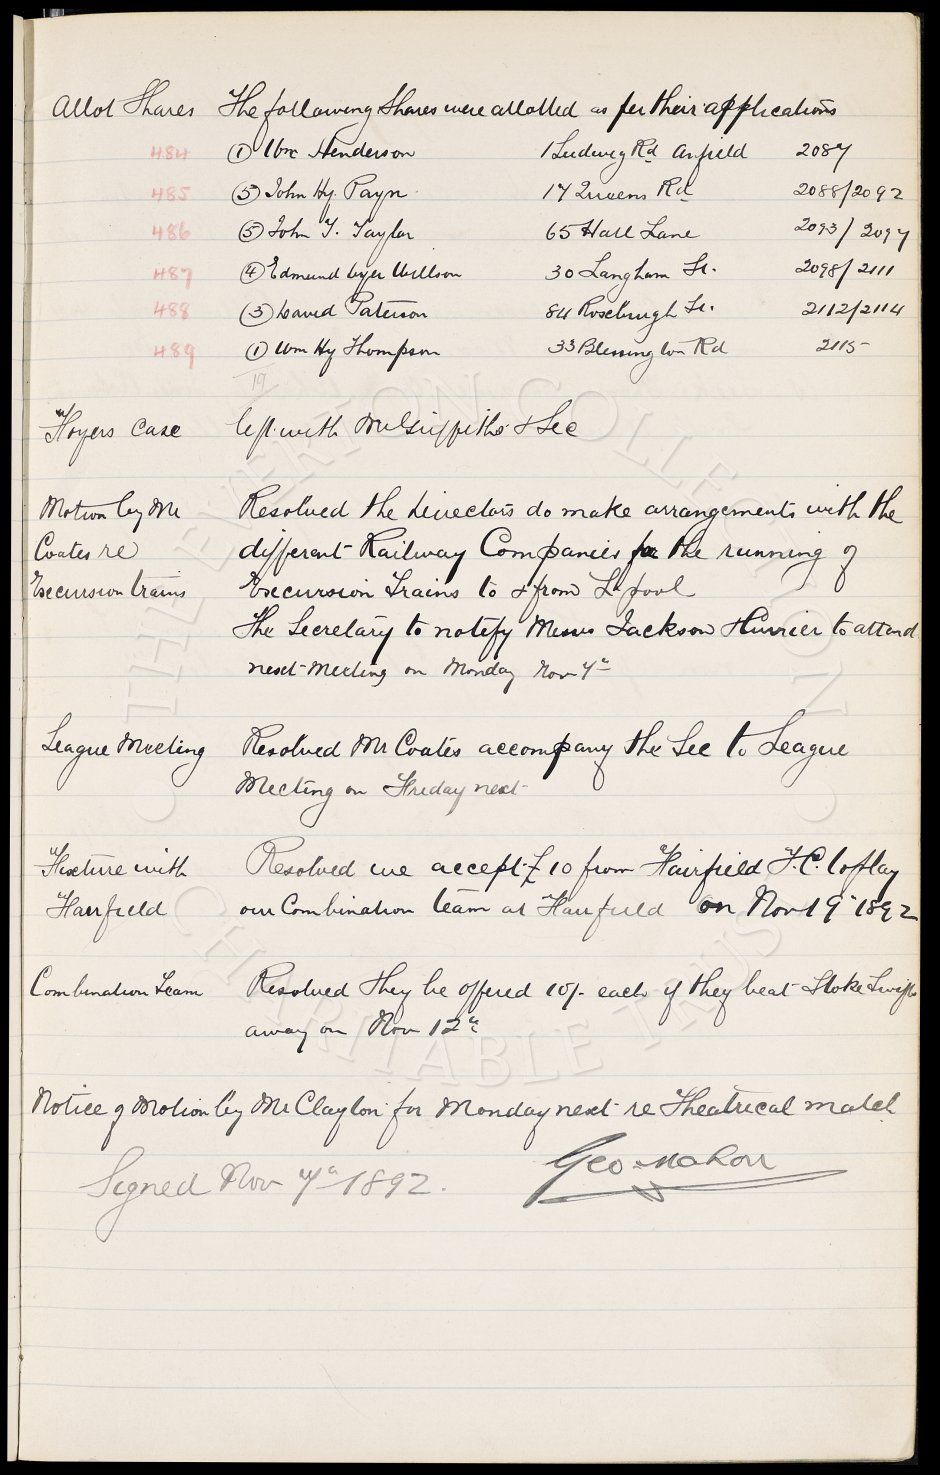 Allot Shares The following Shares were allotted as per their applications
484 (1) Wm Henderson 1 Ludwig Rd Anfield 2087
485 (5) John Hy. Payn 17 Queens Rd 2088/2092
486 (5) John T. Taylor 65 Hall Lane 2093/2097
487 (4) Edmund Willson 30 Langham St. 2098/2111
488 (3) David Paterson 84 Rosebrugh St. 2112/2114
489 (1) Wm Hy Thompson 33 Blessington Rd 2115
19
Hoyers Case left with Mr Griffiths & Sec
Motion by Mr Resolved the directors do make arrangements with the
Coates re different Railway Companies for the running of
Excursion trains Excursion Trains to & from L'pool
The Secretary to notify Messrs Jackson Hurrier to attend
next Meeting on Monday Nov 7th
League Meeting Resolved Mr Coates accompany the Sec to League
Meeting on Friday next
Fixture with Resolved we accept £10 from Fairfield F.C. to play
Fairfield our Combination team at Fairfield on Nov 19th 1892
Combination Team Resolved they be offered 10/- each if they beat Stoke Swifts
away on Nov 12th
Notice of Motion by Mr Clayton for Monday next re Theatrical match
Signed Nov 7th 1892. Geo Mahon
THE EVERTON COLLECTION
CHARITABLE TRUST